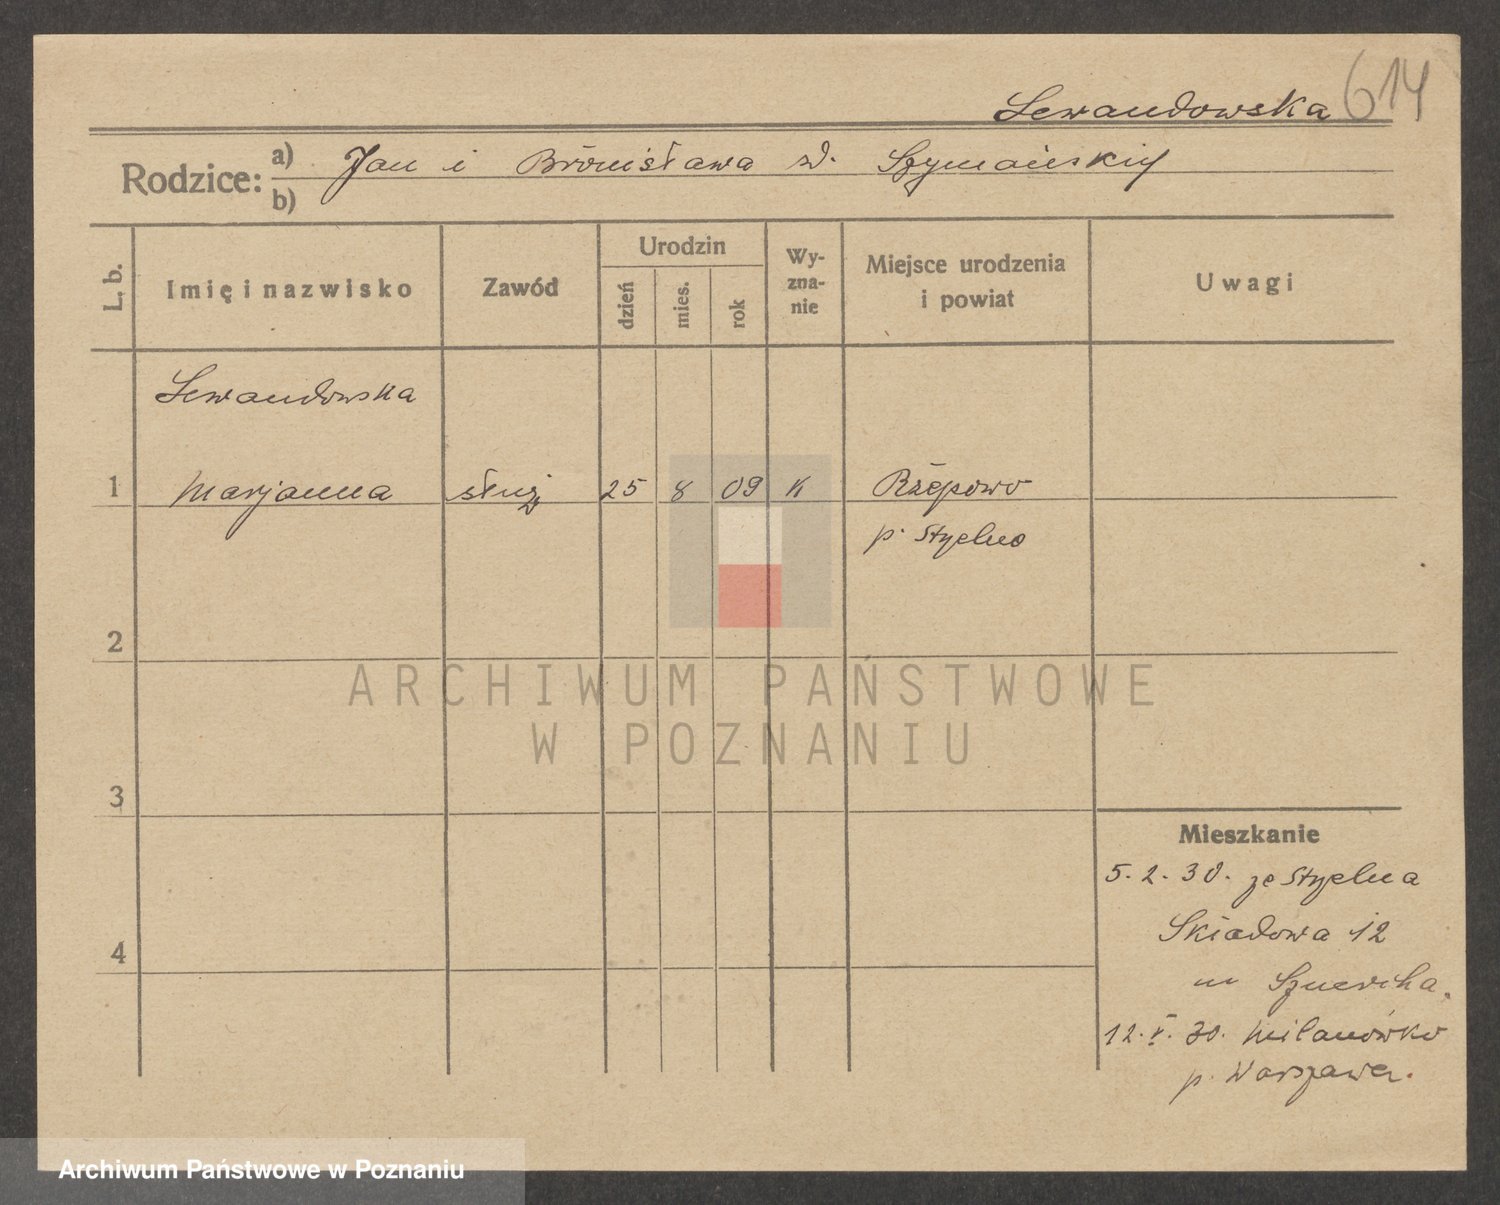 614
Lewandowska
Rodzice: a) Jan i Bronisława z d. Szymańskich
b)
L. b.
Imię i nazwisko
Zawód
Urodzin
dzień
mies.
rok
Wy-
zna-
nie
Miejsce urodzenia
i powiat
Uwagi
Lewandowska
1 Marjanna służ 25 8 09 K Rzepowo
p. Strzelno
2
ARCHIWUM PAŃSTWOWE
W POZNANIU
3
Mieszkanie
5.2.30. ze Strzelna
Składowa 12
4
12.V.30. Milanówko
p. Warszawa.
Archiwum Państwowe w Poznaniu